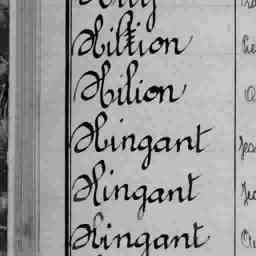 Hillion
Hilion
Hingant
Hingant
Hingant